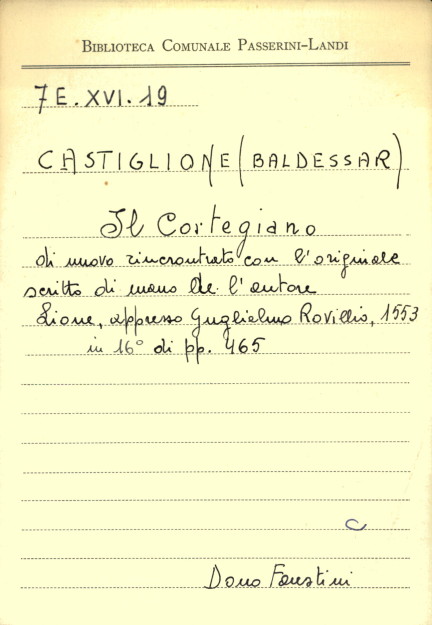 BIBLIOTECA COMUNALE PASSERINI-LANDI
7 E. XVI. 19
CASTIGLIONE (BALDESSAR)
Il Cortegiano
di nuovo rincontrato con l'originale
scritto di mano de l'autore
Lione, appresso Guglielmo Rovillio, 1553
in 16° di pp. 465
C
Dono Faustini